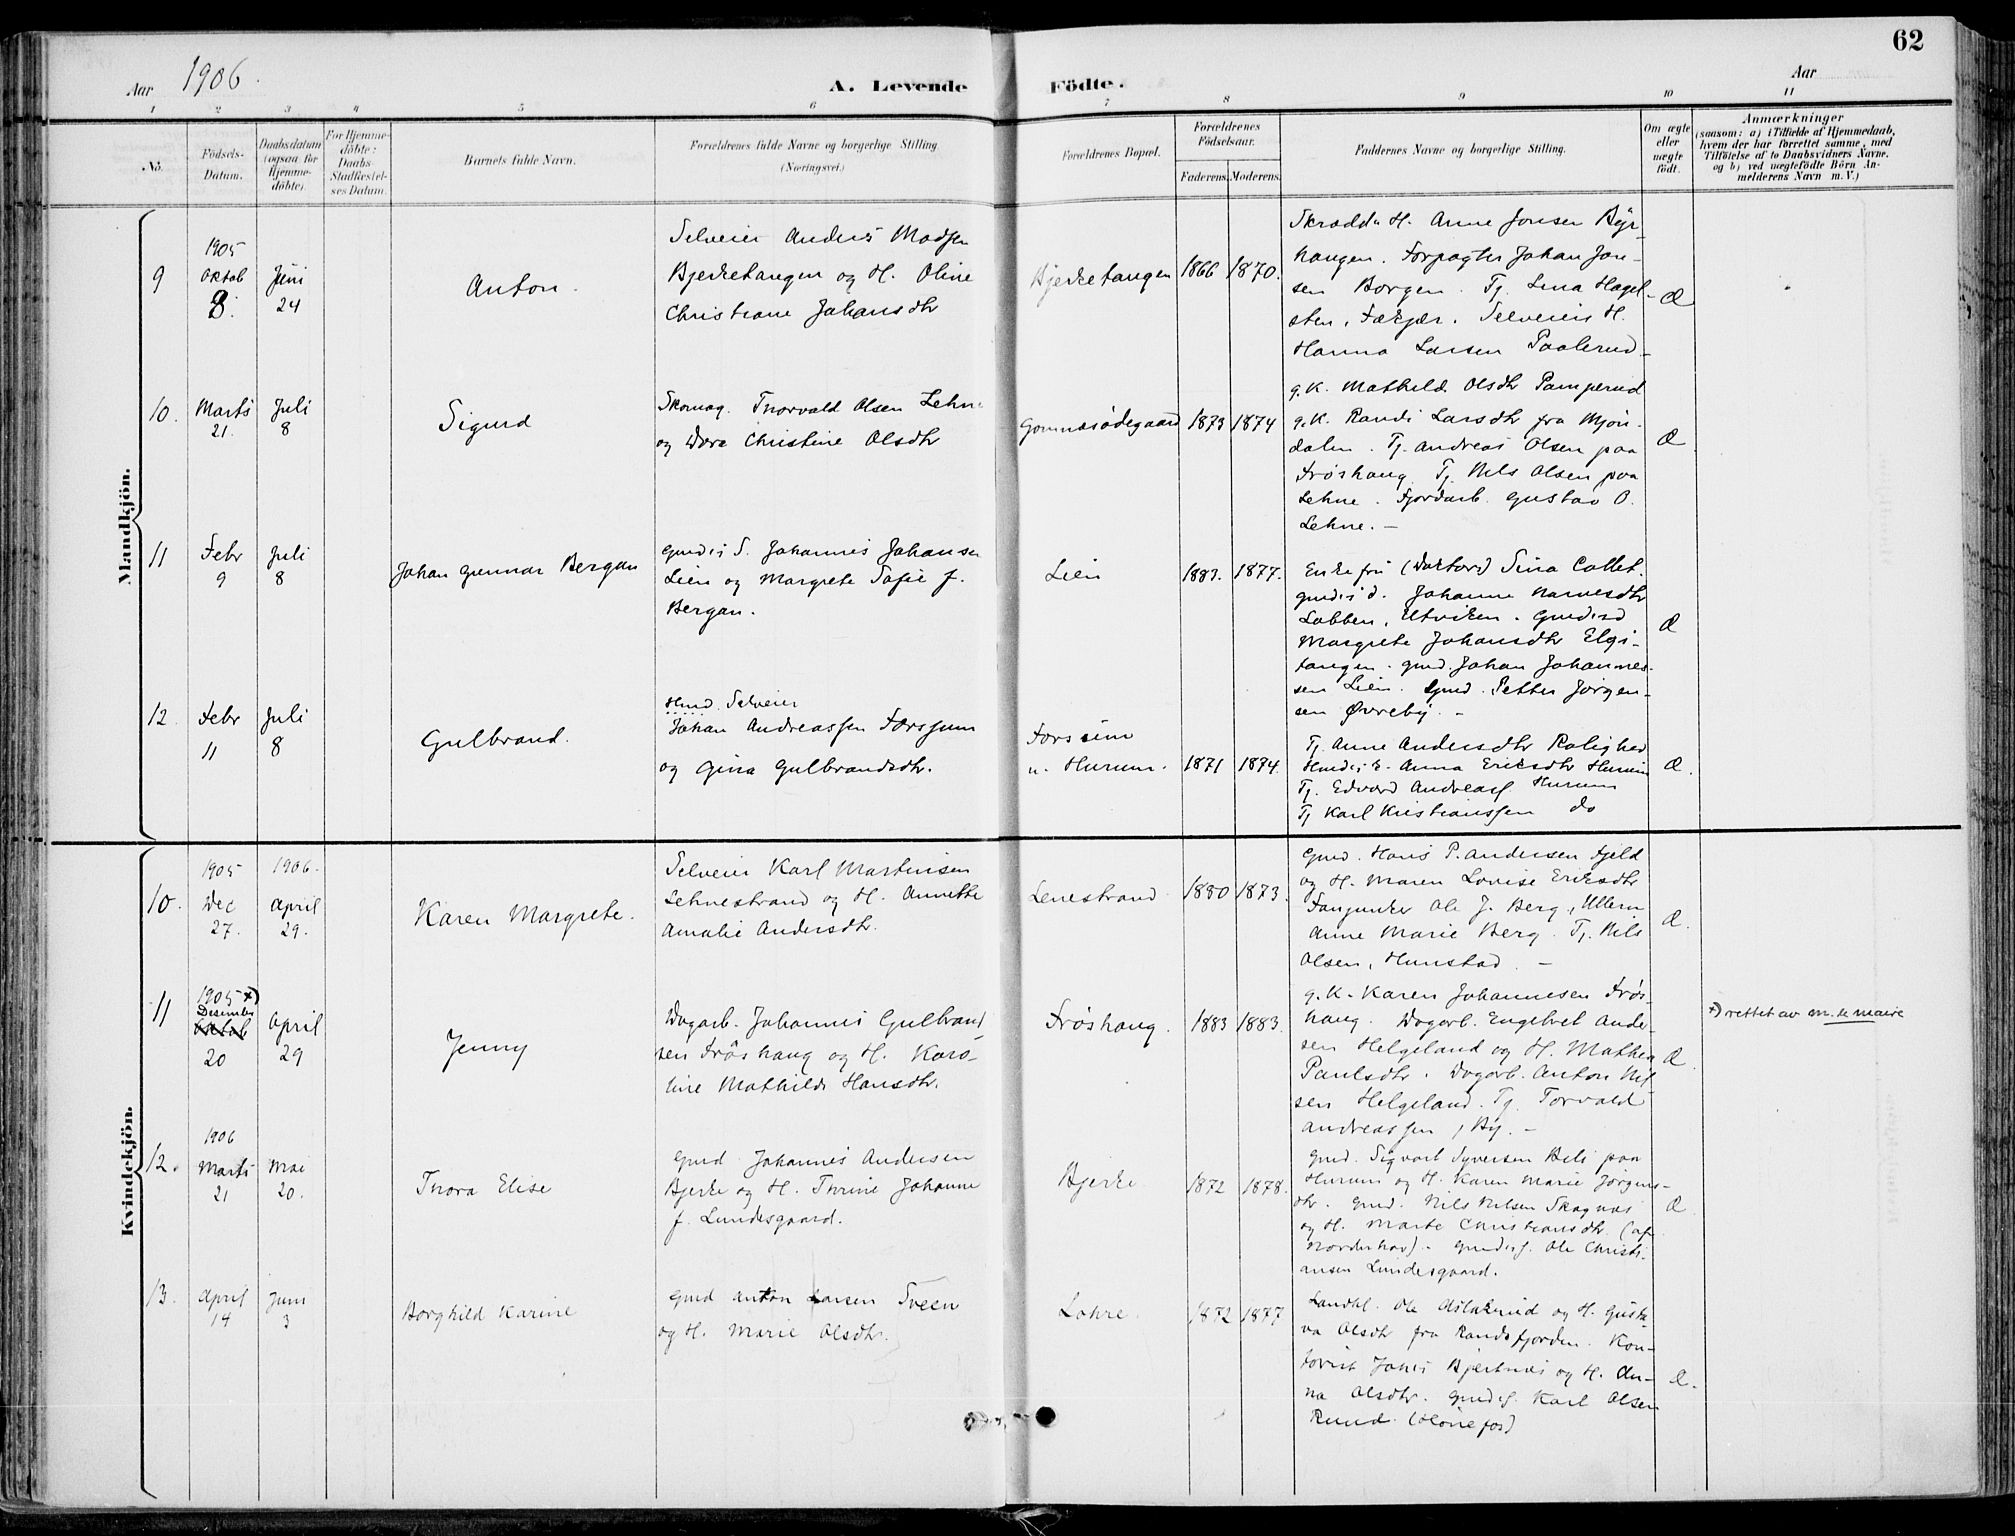 62
Aar 1906.
A. Levende Födte.
Aar
1 2 3 4 5 6 7 8 9 10 11
No.
Födsels-Datum.
Daabsdatum (ogsaa for Hjemme-döbte).
For Hjemme-döbte: Daabs-Stadfæstel-ses Datum.
Barnets fulde Navn.
Forældrenes fulde Navne og borgerlige Stilling (Næringsvei.)
Forældrenes Bopæl.
Forældrenes Födselsaar.
Faderens. Moderens.
Faddernes Navne og borgerlige Stilling.
Om ægte eller uægte født.
Anmærkninger
(saasom: a) i Tilfælde af Hjemmedaab,
hvem der har forrettet samme, med
Tilföielse af to Daabsvidners Navne.
og b) ved uægtefödte Börn An-
melderens Navn m. V.)
Mandkjön.
9
1905
Oktob
8.
Juni
24
Anton.
Selveier Anders Madsen
Bjerketangen og H. Oline
Christiane Johansdtr
Bjerketangen
1866
1870.
H. Anne Jonsen Byr-
haugen. Forpagter Johan Jon-
sen Borgen. Tj. Lina Hagel-
sten, Selveiers H.
Hanna Larsen Paalerud
Æ
10.
Marts
21.
Juli
8
Sigurd
Skomag. Thorvald Olsen Lehne
og Christine Olsdtr
1873
1874
g. K. Mathild. Olsdtr Pamperud
g. K. Randi Larsdtr fra Mjøn-
dalen. Tj. Andreas Olsen paa
Frøshaug. Tj. Nils Olsen paa
Lehne. Gustav O.
Lehne. -
Æ
11
Febr
9
Juli
8
Johan Gunnar Bergan
Gmdss. Johannes Johansen
Lien og Margrete Sofie f.
Bergan.
Lien
1883.
1877.
Enkefru Sina Collet.
Johanne
Utviken.
Margrete Johansdtr Elgs-
tangen. gmd. Johan Johannes-
sen Lien. Gmd. Petter Jørgen-
sen Øvreby. -
Æ
12.
Febr
11
Juli
8
Gulbrand.
Hmd. Selveier
Johan Andreassen Forssum
og Gina Gulbrandsdtr.
Forssum
u. Hurum.
1871
1874.
Tj. Anne Andersdtr Rolighed
Anna Eriksdtr Hurum
Tj. Edvard Andreass Hurum
Tj Karl Kristianssen do
Æ.
Kvindekjön.
10.
1905
Dec
27.
1906.
April
29.
Karen Margrete.
Selveier Karl Martinsen
Lehnestrand og H. Annette
Amalie Andersdtr.
Lenestrand
1880
1873.
Gmd. Hans P. Andersen Fjeld
og H. Maren Lovise Eriksdtr
Fanjunker Ole J. Berg, Ullern
Anne Marie Berg. Tj. Nils
Olsen, Hunstad. -
Æ.
11
1905 +)
Desember
Oktob
20
April
29
Jenny
Dagarb. Johannes Gulbrand
sen Frøshaug og H. Karo-
line Mathilde Hansdtr.
Frøshaug.
1883
1883.
g. K. Karen Johannesen Frøs-
haug. Dagarb. Engebret Ande-
sen Helgeland og H. Mathea
Paulsdtr. Dagarb. Anton Nil
sen Helgeland. Tj. Torvald
Andreassen, By. -
Æ.
+) rettet av
12.
1906
Marts
21
Mai
20.
Thora Elise
Gmd Johannes Andersen
Bjerke og H. Thrine Johanne
f. Lundesgaard.
Bjerke.
1872
1878.
Gmd. Sigvart Syversen Bili paa
Hurum og H. Karen Marie Jørgens-
dtr. Gmd. Nils Nilsen Skagnæs
og H. Marte Christiansdtr. (af
Norderhov). Ole Christi-
ansen Lundesgaard.
Æ.
13.
April
14
Juni
3
Borghild Karine
Gmd Anton Larsen Sveen
og H. Marie Olsdtr.
Lohre.
1872
1877
Landhl. Ole Aslakrud og H. Gusta-
va Olsdtr fra Randsfjorden. Kon-
torist Bjertnæs og H. An-
na Olsdtr. Karl Olsen
Rund. (Hønefos)
Æ.